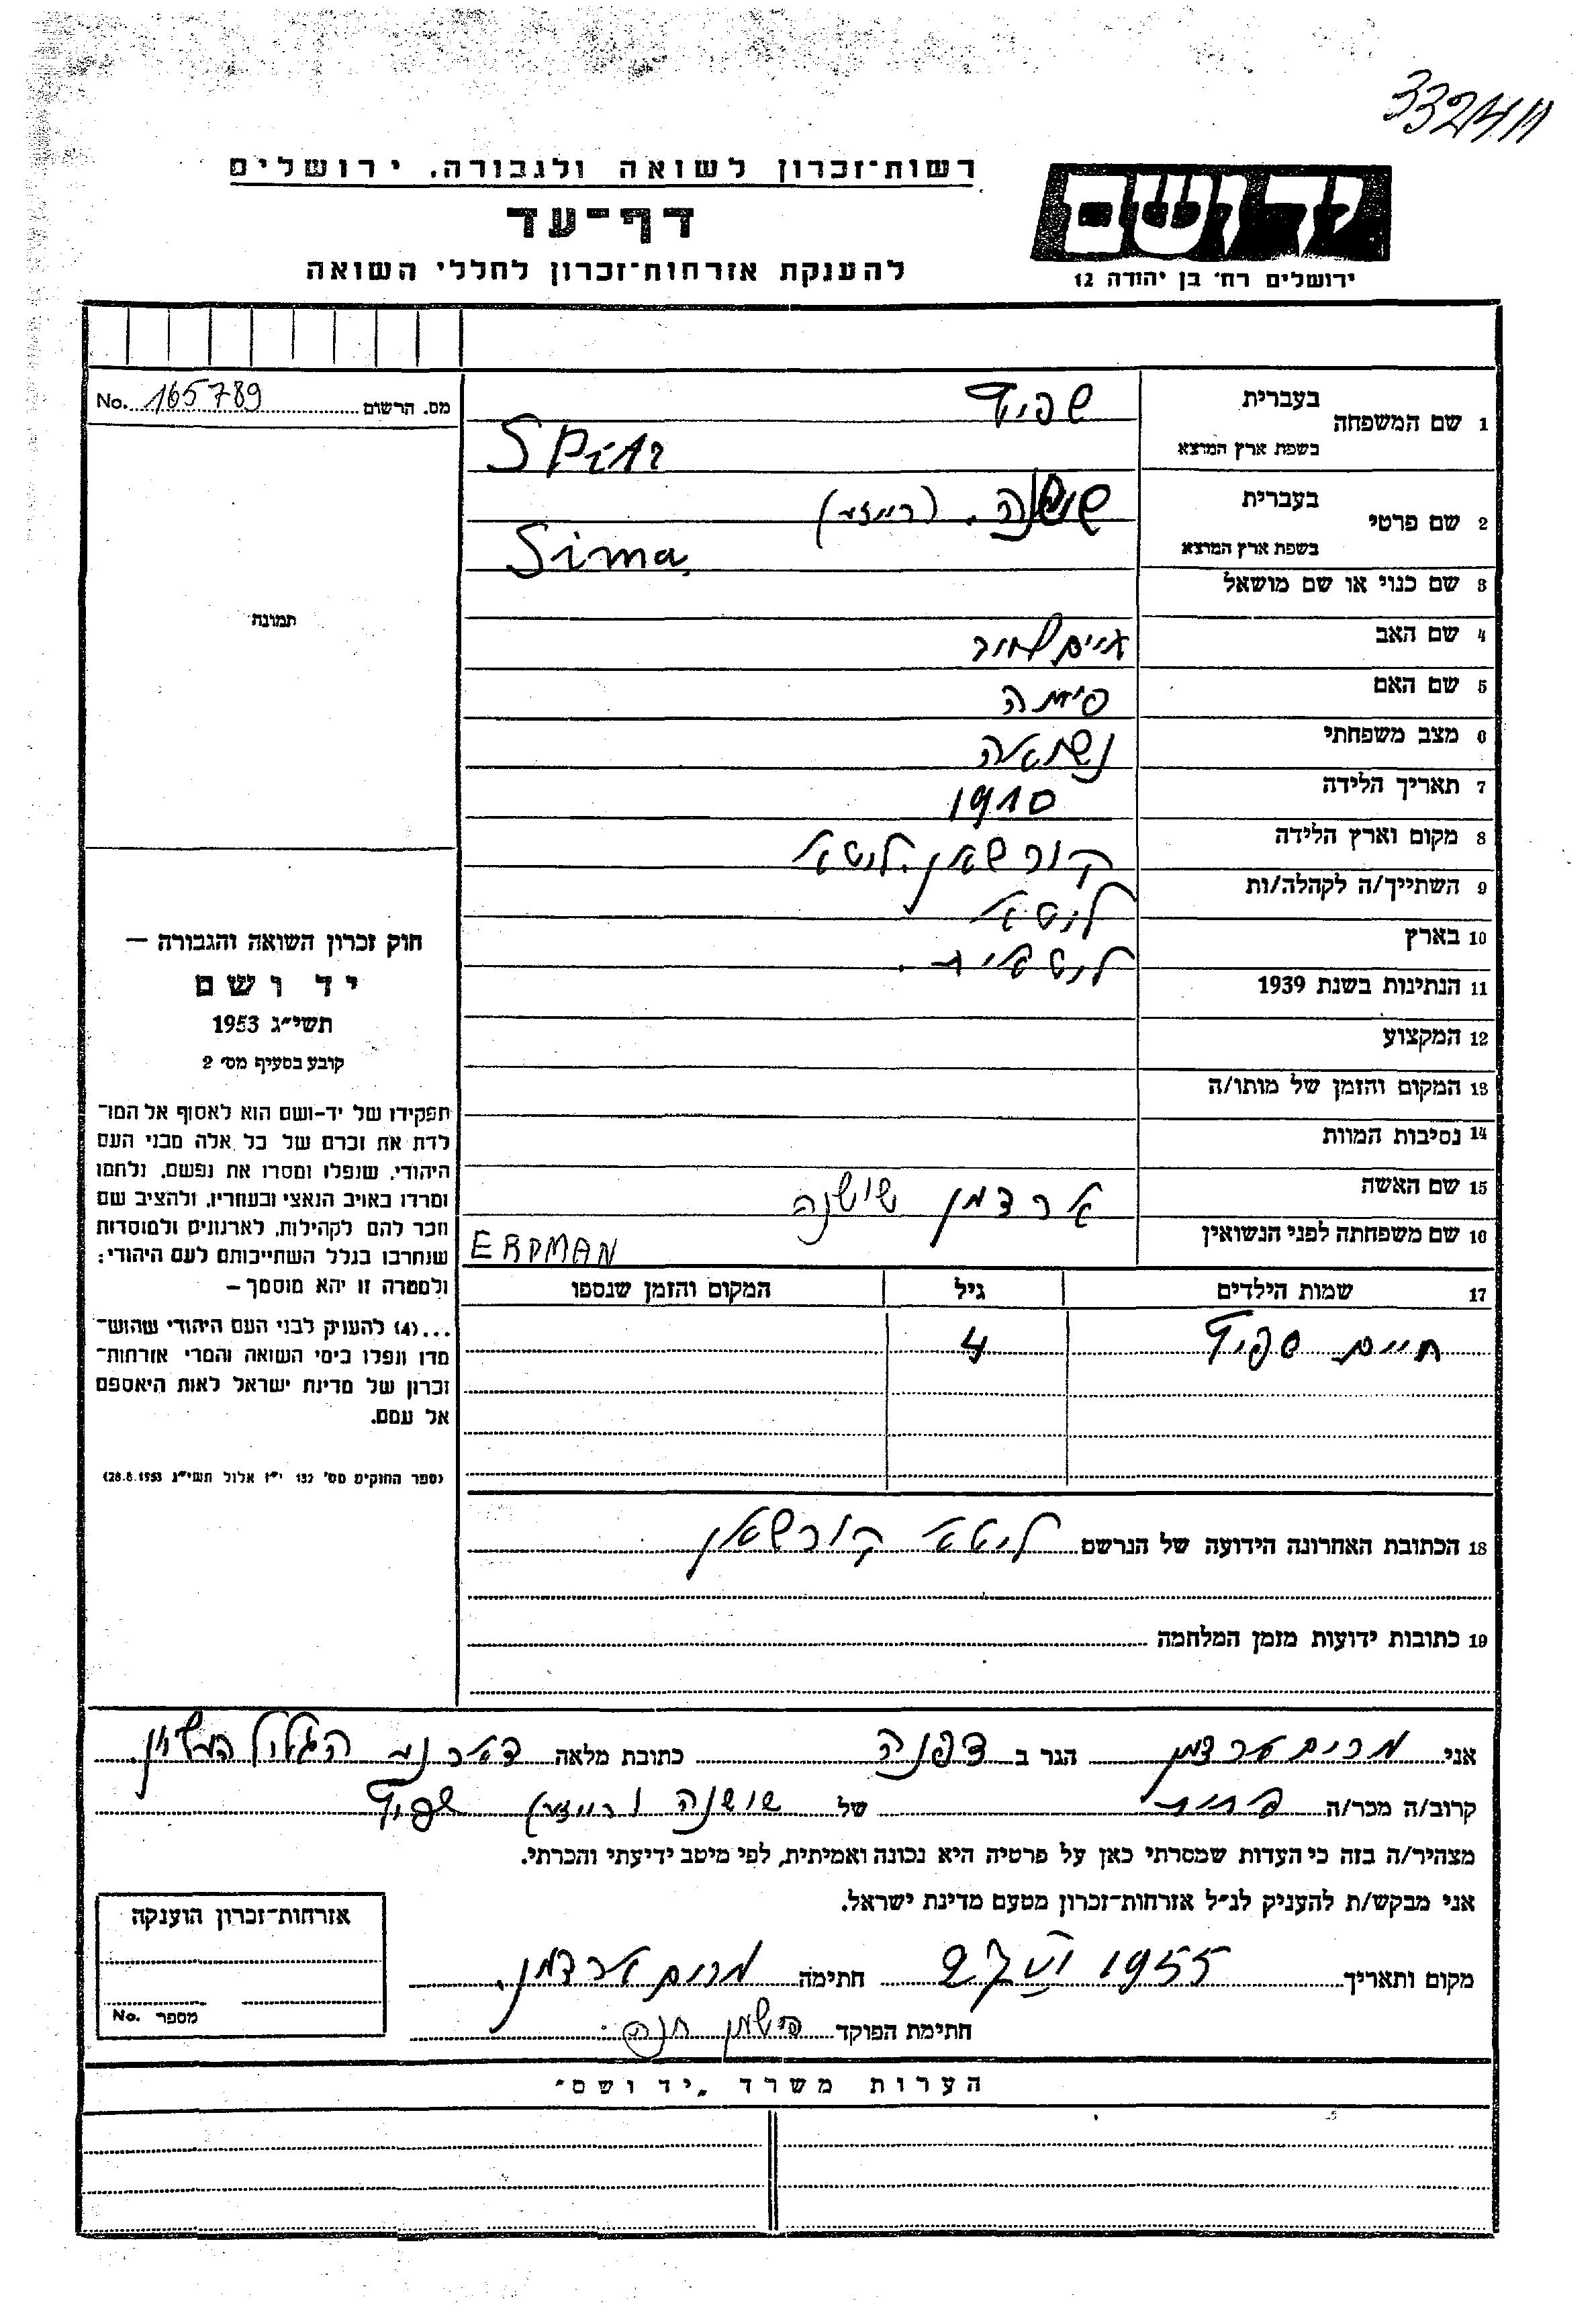 33244
רשות־זכרון לשואה ולגבורה. ירושלים
דף־עד
להענקת אזרחות־זכרון לחללי השואה
יד ושם
ירושלים רח׳ בן יהודה 12
מס. הרשום 165789 No.
1 שם המשפחה
בעברית שפיץ
בשפת ארץ המוצא
2 שם פרטי
בעברית שושנה. (רייזע)
בשפת ארץ המוצא Sima
3 שם כנוי או שם מושאל
4 שם האב
5 שם האם
6 מצב משפחתי נשואה
7 תאריך הלידה 1910
8 מקום וארץ הלידה קורשאן ליטא
9 השתייך/ה לקהלה/ות ליטא
10 בארץ ליטאית.
11 הנתינות בשנת 1939
12 המקצוע
13 המקום והזמן של מותו/ה
14 נסיבות המוות
15 שם האשה ארדמן שושנה
16 שם משפחתה לפני הנשואין ERDMAN
17 שמות הילדים גיל המקום והזמן שנספו
חיים שפיץ 4
18 הכתובת האחרונה הידועה של הנרשם ליטא קורשאן
19 כתובות ידועות מזמן המלחמה
תמונה
חוק זכרון השואה והגבורה –
יד ושם
תשי״ג 1953
קובע בסעיף מס׳ 2
תפקידו של יד-ושם הוא לאסוף אל המו־
לדת את זכרם של כל אלה מבני העם
היהודי, שנפלו ומסרו את נפשם, נלחמו
ומרדו באויב הנאצי ובעוזריו, ולהציב שם
וזכר להם לקהילות, לארגונים ולמוסדות
שנחרבו בגלל השתייכותם לעם היהודי;
ולמטרה זו יהא מוסמך –
...(4) להעניק לבני העם היהודי שהוש־
מדו ונפלו בימי השואה והמרי אזרחות־
זכרון של מדינת ישראל לאות היאספם
אל עמם.
(ספר החוקים מס׳ 132 י״ז אלול תשי״ג 28.8.1953)
אני מרים ארדמן הגר ב דפנה כתובת מלאה הגליל העליון
קרוב/ה מכר/ה של שושנה (רייזע) שפיץ
מצהיר/ה בזה כי העדות שמסרתי כאן על פרטיה היא נכונה ואמיתית, לפי מיטב ידיעתי והכרתי.
אני מבקש/ת להעניק לנ״ל אזרחות־זכרון מטעם מדינת ישראל.
מקום ותאריך 27 VI 1955 חתימה מרים ארדמן.
חתימת הפוקד חנה
אזרחות־זכרון הוענקה
מספר No.
הערות משרד „יד ושם״